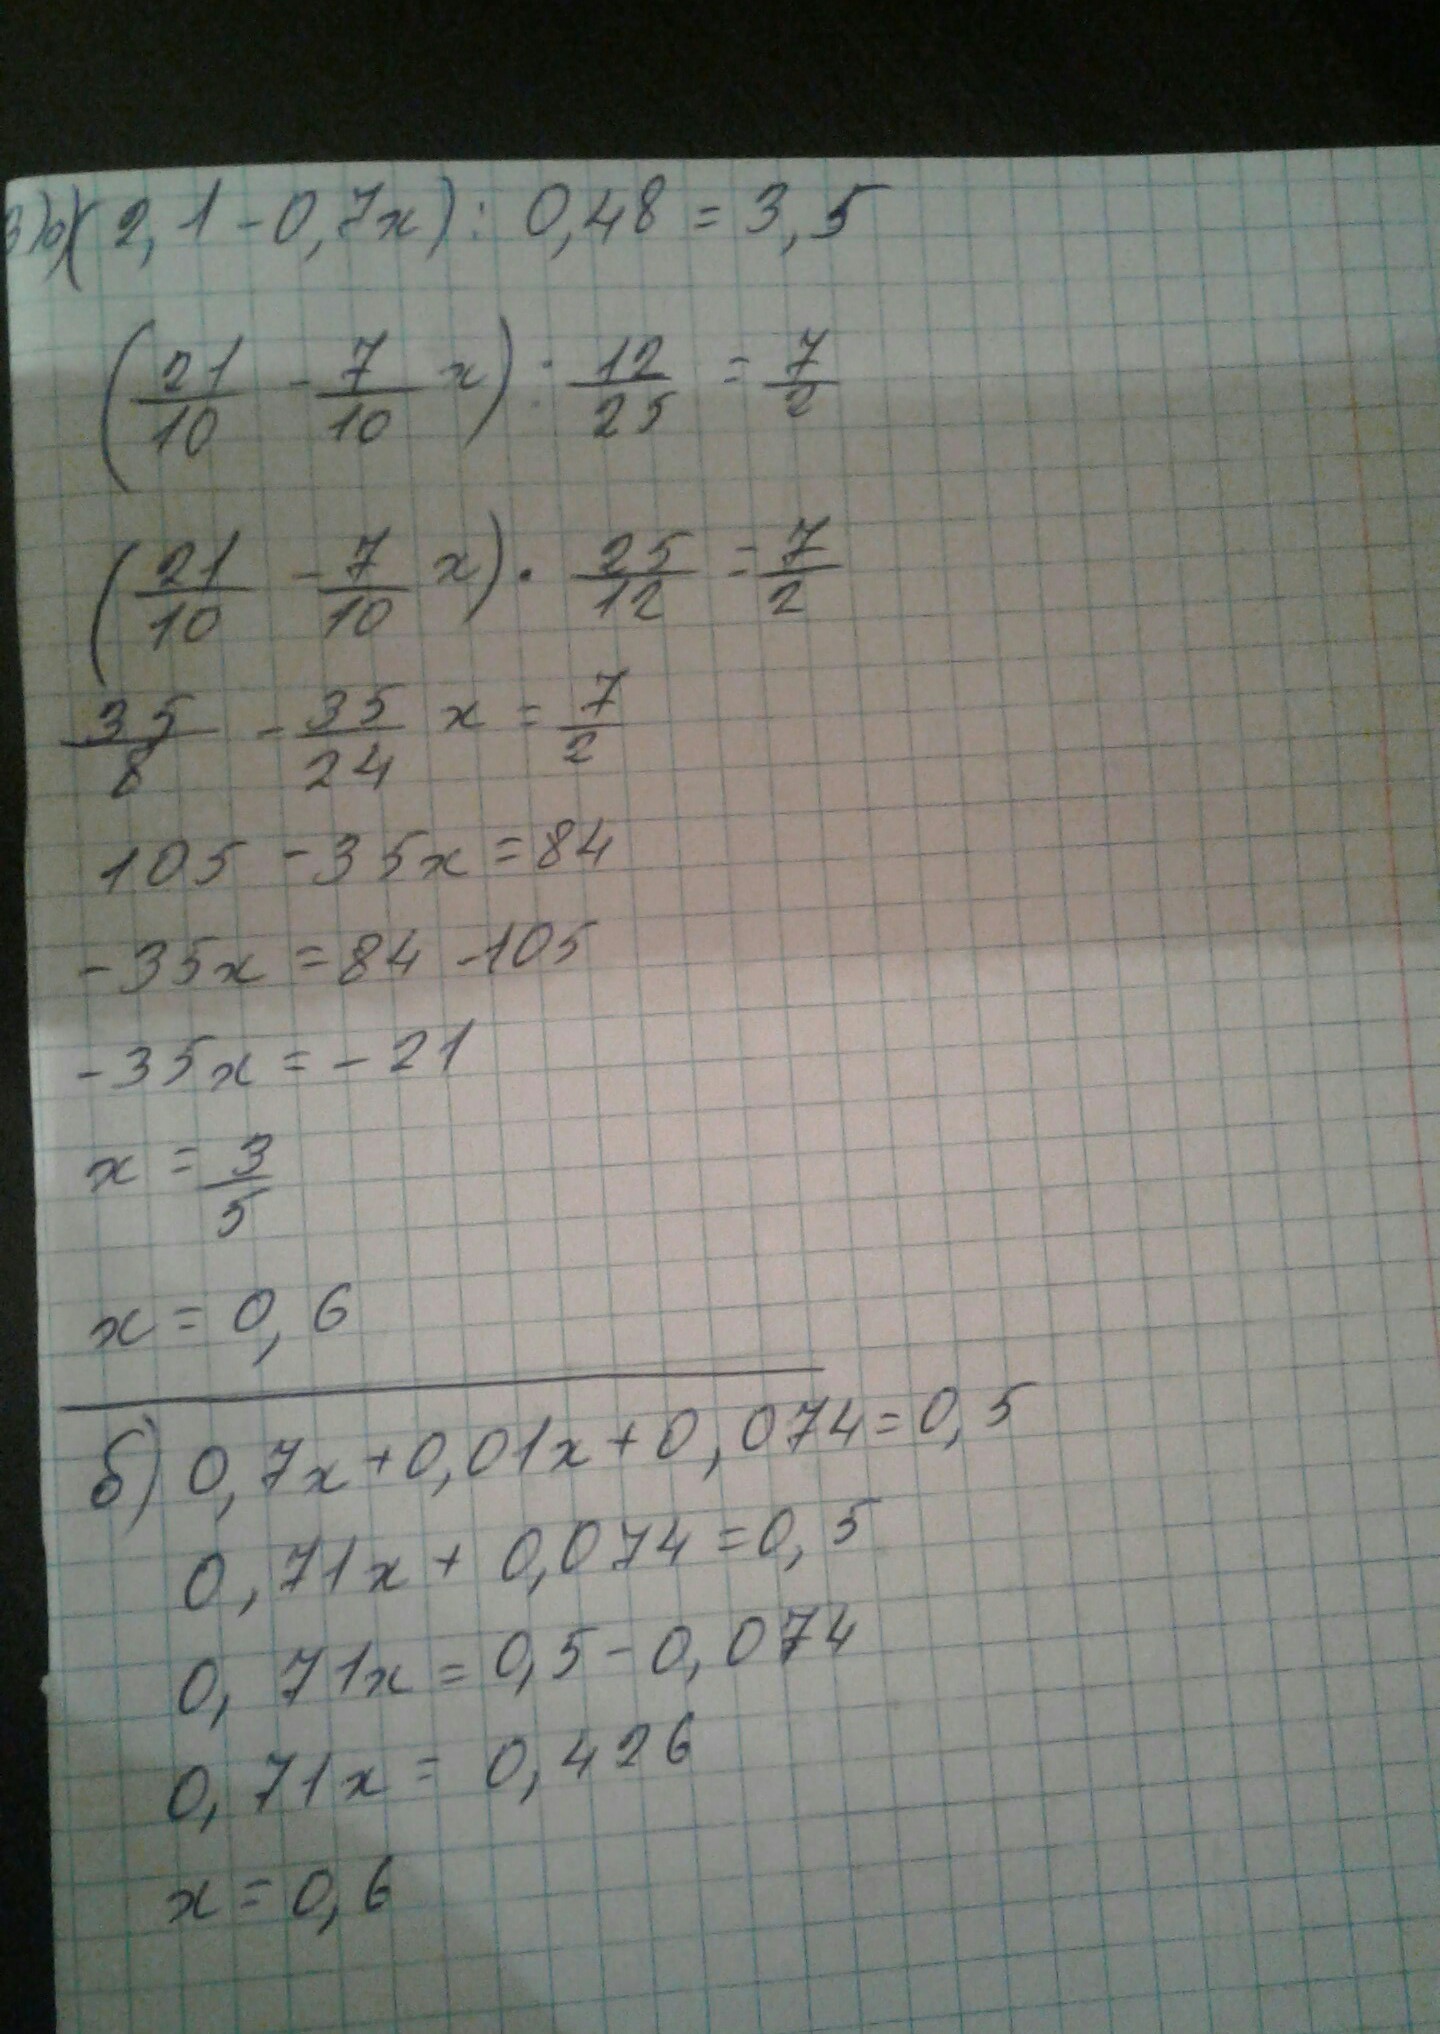 3) а) (2,1-0,7x) : 0,48 = 3,5
(21/10 - 7/10 x) : 12/25 = 7/2
(21/10 - 7/10 x) · 25/12 = 7/2
35/8 - 35/24 x = 7/2
105 - 35x = 84
-35x = 84 - 105
-35x = -21
x = 3/5
x = 0,6
б) 0,7x + 0,01x + 0,074 = 0,5
0,71x + 0,074 = 0,5
0,71x = 0,5 - 0,074
0,71x = 0,426
x = 0,6